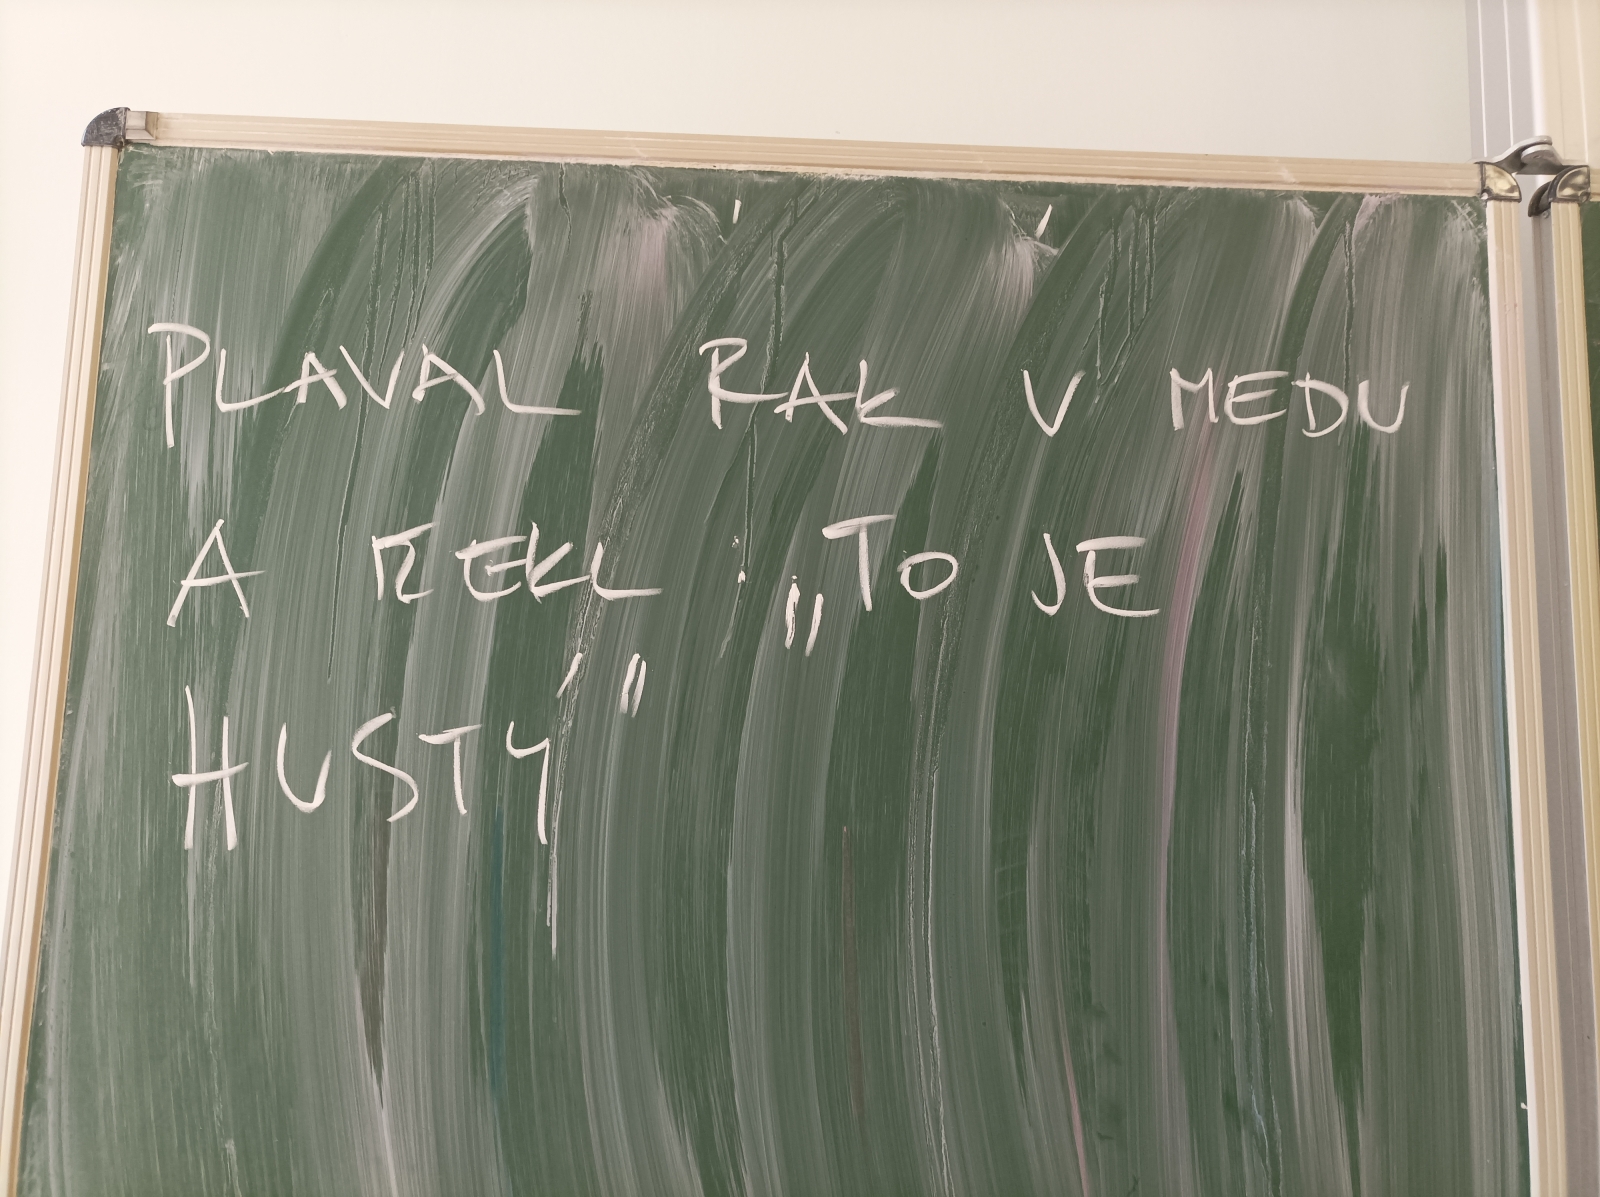 PLAVAL RAK V MEDU
A REKL : „TO JE
HUSTÝ"